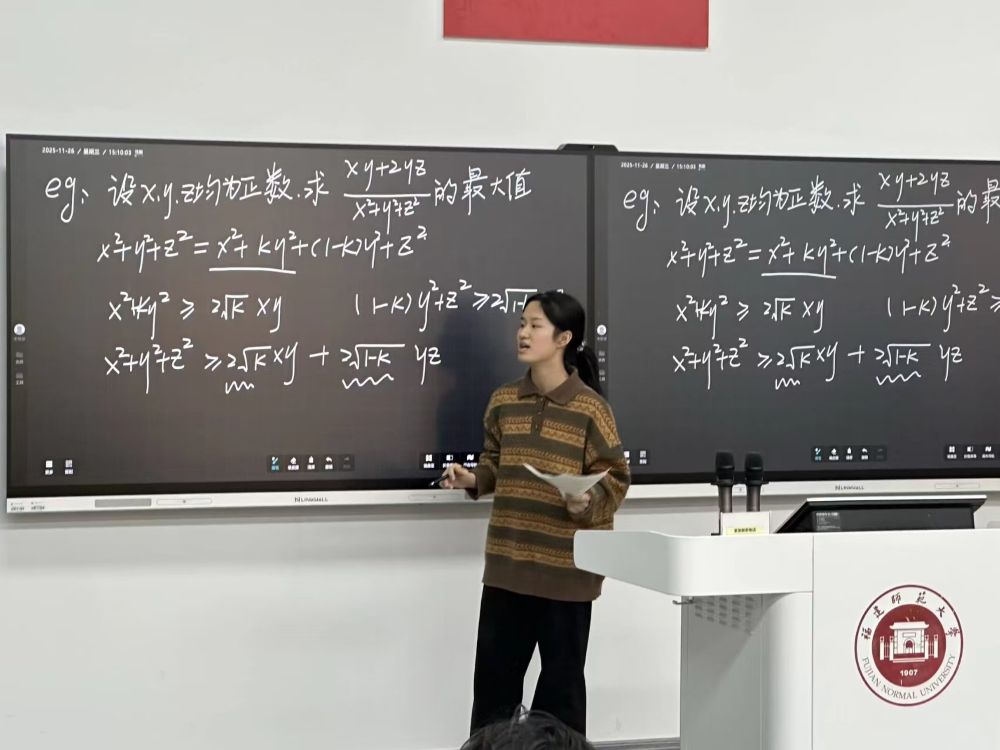 2025-11-26 / 星期三 / 15:10:03
eg、设x.y.z均为正数.求 xy+2yz / x²+y²+z² 的最大值
x²+y²+z² = x²+ky²+(1-k)y²+z²
x²+ky² ≥ 2√k xy (1-k)y²+z² ≥ 2√1-k
x²+y²+z² ≥ 2√k xy + 2√1-k yz
NLINKWALL
2025-11-26 / 星期三 / 15:10:03
eg、设x.y.z均为正数.求 xy+2yz / x²+y²+z² 的最
x²+y²+z² = x²+ky²+(1-k)y²+z²
x²+ky² ≥ 2√k xy (1-k)y²+z² ≥
x²+y²+z² ≥ 2√k xy + 2√1-k yz
NLINKWALL
福建师范大学
1907
FUJIAN NORMAL UNIVERSITY